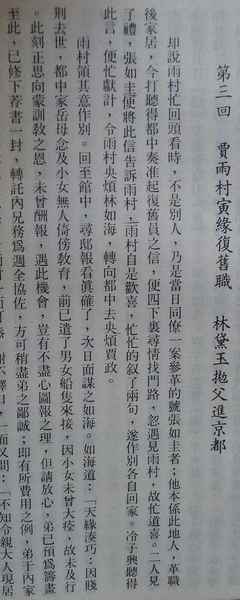 第三回　賈雨村寅緣復舊職　林黛玉拋父進京都
卻說雨村忙回頭看時，不是別人，乃是當日同僚一案參革的號張如圭者；他本係此地人，革職
後家居，今打聽得都中奏准起復舊員之信，便四下裏尋情找門路，忽遇見雨村，故忙道喜。二人見
了禮，張如圭便將此信告訴雨村，雨村自是歡喜，忙忙的敘了兩句，遂作別各自回家。冷子興聽得
此言，便忙獻計，令雨村央煩林如海，轉向都中去央煩賈政。
雨村領其意作別。回至館中，尋邸報看真確了，次日面謀之如海。如海道：「天緣湊巧：因賤
荊去世，都中家岳母念及小女無人倚傍教育，前已遣了男女船隻來接，因小女未曾大痊，故未及行
此刻正思向蒙訓教之恩，未曾酬報，遇此機會，豈有不盡心圖報之理，但請放心，弟已預為籌畫
至此，已修下荐書一封，轉託內兄務為週全協佐，方可稍盡弟之鄙誠；即有所費用之例，弟于內家
謝不釋口，一面又問：「不知令親大人現居